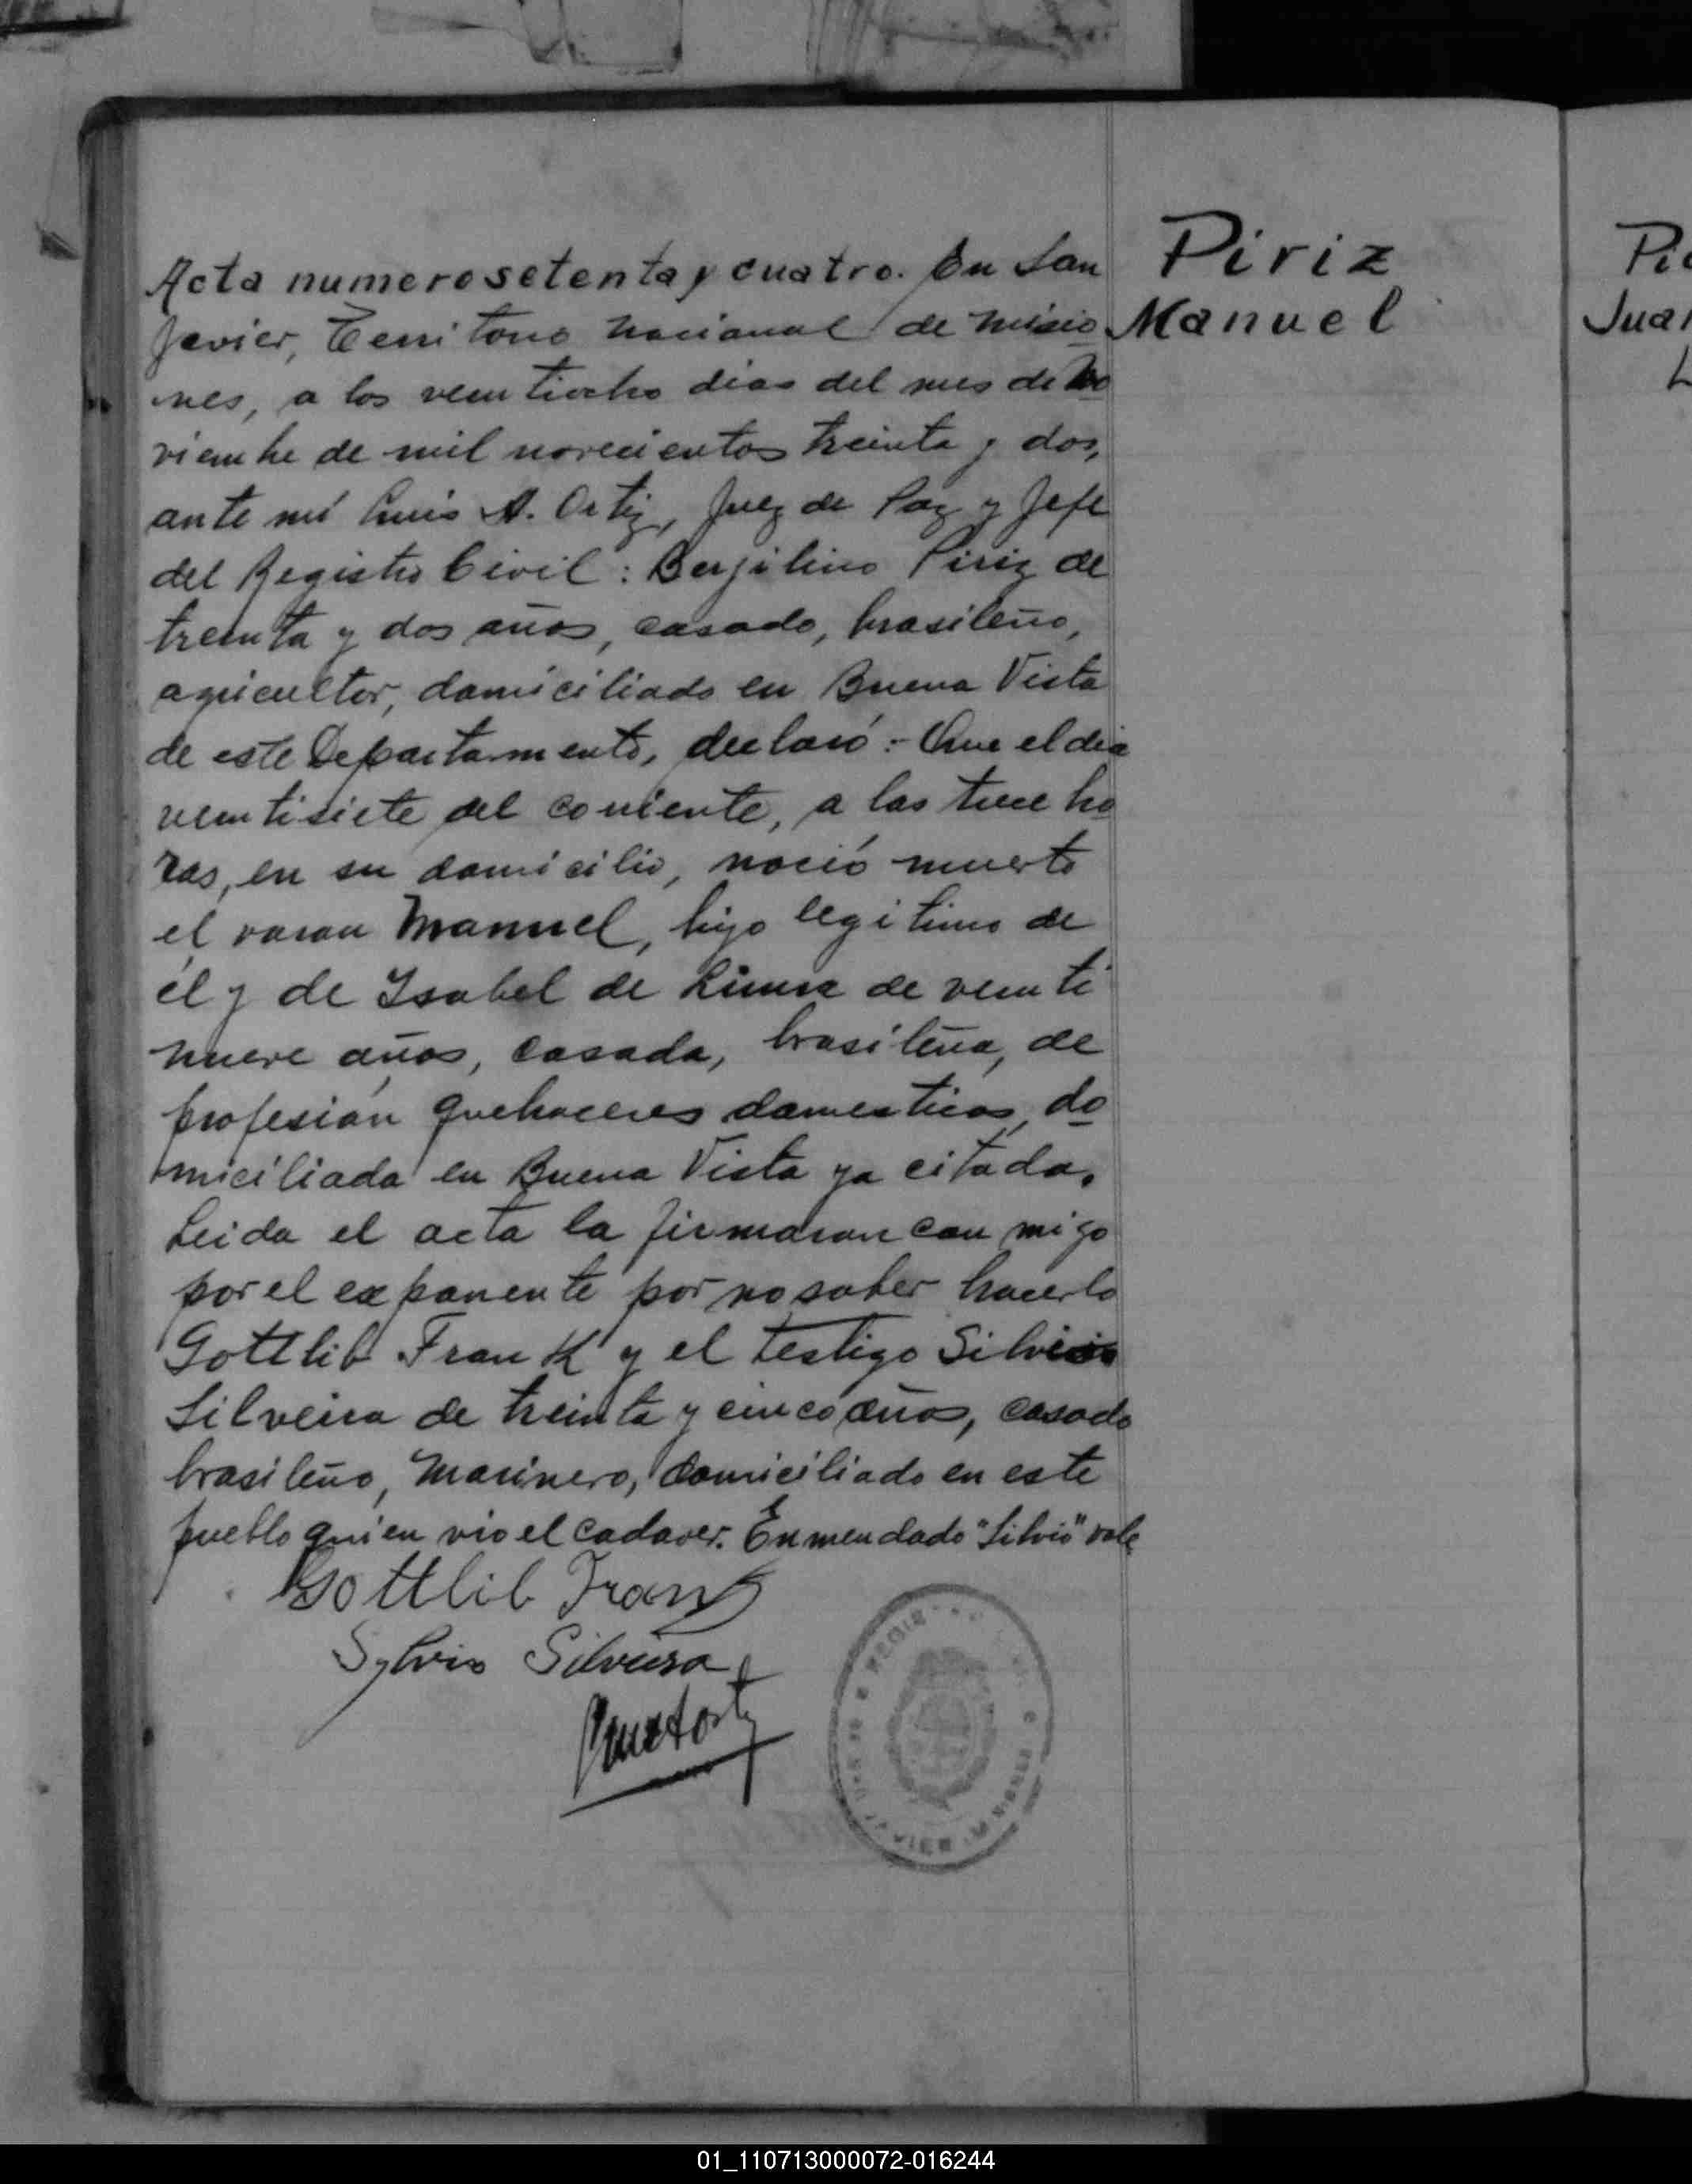 Acta numero setenta y cuatro. En San
Javier, Territorio Nacional de Misio
nes, a los veintiocho dias del mes de No
viembre de mil novecientos treinta y dos,
ante mi Luis A. Ortiz, Juez de Paz y Jefe
del Registro Civil: Berjilino Piriz de
treinta y dos años, casado, brasileño,
agricultor, domiciliado en Buena Vista
de este Departamento, declaró:- Que el dia
veintisiete del corriente, a las trece ho
ras, en su domicilio, nació muerto
el varon Manuel, hijo legitimo de
él y de Isabel de Lima de veinti
nueve años, casada, brasileña, de
profesión quehaceres domesticos, do
miciliada en Buena Vista ya citada.
Leida el acta la firmaron con migo
por el exponente por no saber hacerlo
Gottlib Frank y el testigo Silvio
Silveira de treinta y cinco años, casado
brasileño, Marinero, domiciliado en este
pueblo quien vio el cadaver. Enmendado "Silvio" vale
Gottlib Frank
Sylvio Silveira
Luis A Ortiz
Piriz
Manuel
SAN JAVIER MISIONES
Juan
01_110713000072-016244